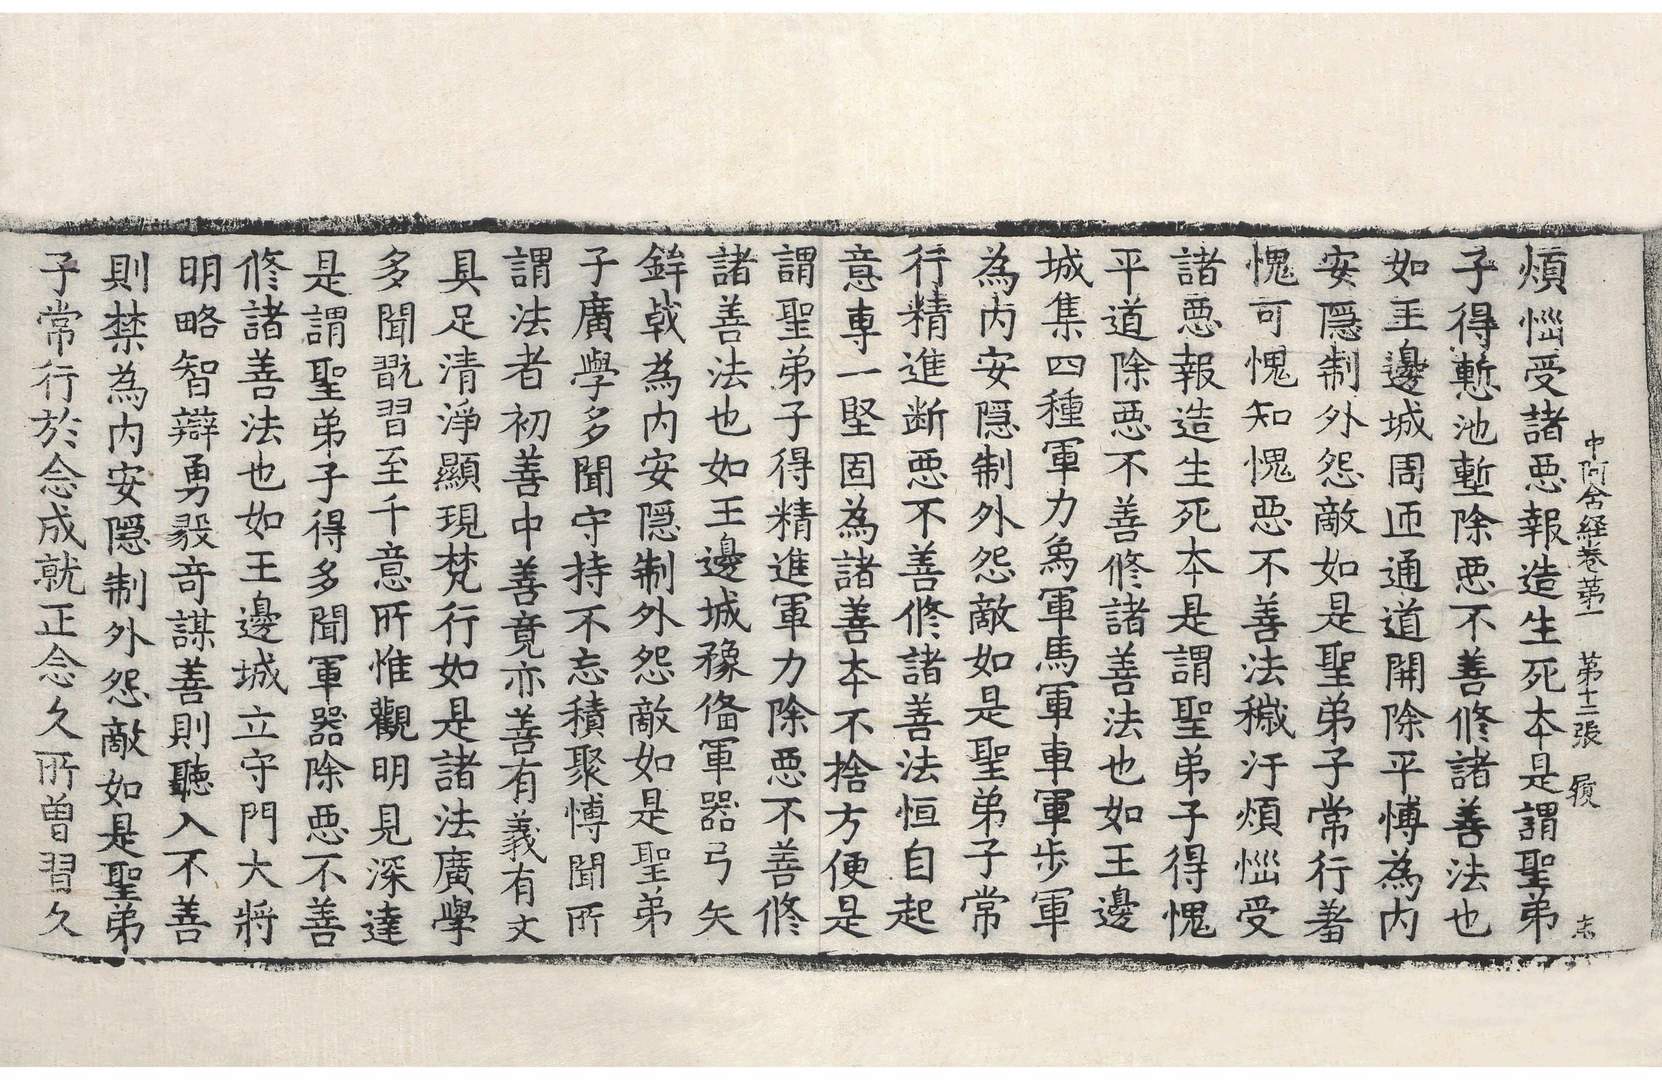 中阿含経卷苐一 苐十二張 履 末
煩惱受諸惡報造生死本是謂聖弟
子得慙池塹除惡不善修諸善法也
如王邊城周匝通道開除平博為内
安隱制外怨敵如是聖弟子常行羞
愧可愧知愧惡不善法穢汙煩惱受
諸惡報造生死本是謂聖弟子得愧
平道除惡不善修諸善法也如王邊
城集四種軍力象軍馬軍車軍步軍
為内安隱制外怨敵如是聖弟子常
行精進断惡不善修諸善法恒自起
意專一堅固為諸善本不捨方便是
謂聖弟子得精進軍力除惡不善修
諸善法也如王邊城豫俻軍器弓矢
鉾戟為内安隱制外怨敵如是聖弟
子廣學多聞守持不忘積聚博聞所
謂法者初善中善竟亦善有義有文
具足清淨顯現梵行如是諸法廣學
多聞翫習至千意所惟觀明見深達
是謂聖弟子得多聞軍器除惡不善
修諸善法也如王邊城立守門大將
明略智辯勇毅奇謀善則聽入不善
則禁為内安隱制外怨敵如是聖弟
子常行於念成就正念久所曽習久